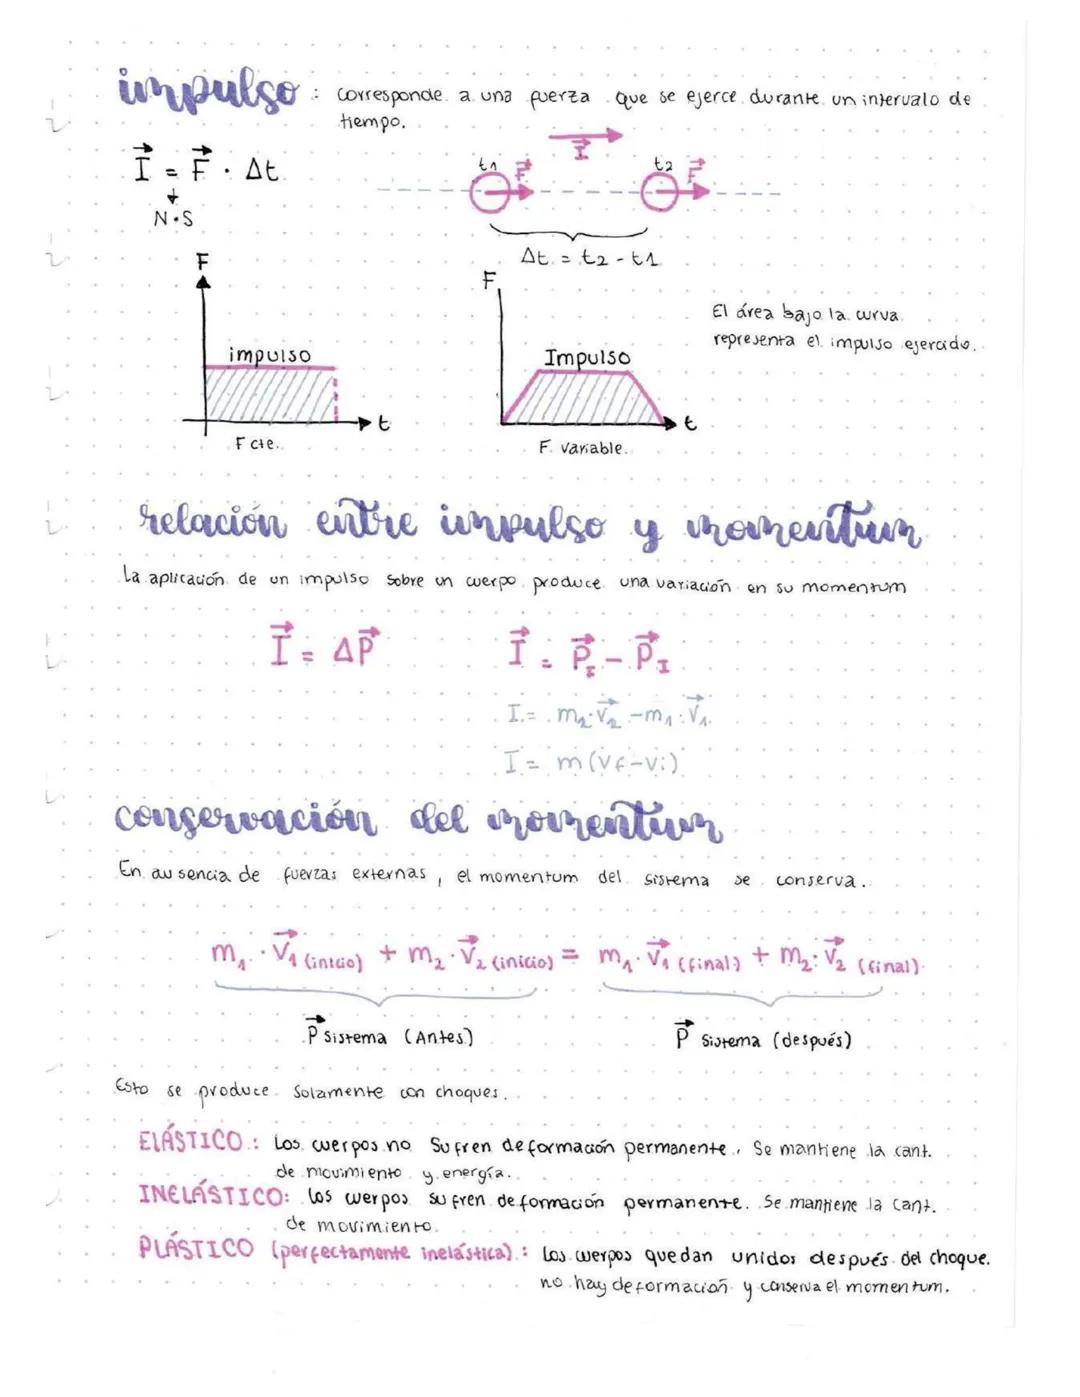 impulso : corresponde a una fuerza que se ejerce durante un intervalo de
tiempo.
I = F · Δt
N·S
I
t1 F t2 F
Δt = t2 - t1
F
impulso
t
F cte.
F
Impulso
t
F. variable.
El área bajo la curva
representa el impulso ejercido.
relación entre impulso y momentum
La aplicación de un impulso sobre un cuerpo produce una variación en su momentum
I = ΔP I = PI - PI
I = m2·V2 - m1·V1
I = m(Vf-Vi)
conservación del momentum
En ausencia de fuerzas externas, el momentum del sistema se conserva.
m1 · V1 (inicio) + m2 · V2 (inicio) = m1 · V1 (final) + m2 · V2 (final)
P Sistema (Antes) P Sistema (después)
Esto se produce solamente con choques.
ELÁSTICO : Los cuerpos no sufren deformación permanente. Se mantiene la cant.
de movimiento y energía.
INELÁSTICO: los cuerpos sufren deformación permanente. Se mantiene la cant.
de movimiento
PLÁSTICO (perfectamente inelástica) : Los cuerpos quedan unidos después del choque.
no hay deformación y conserva el momentum.